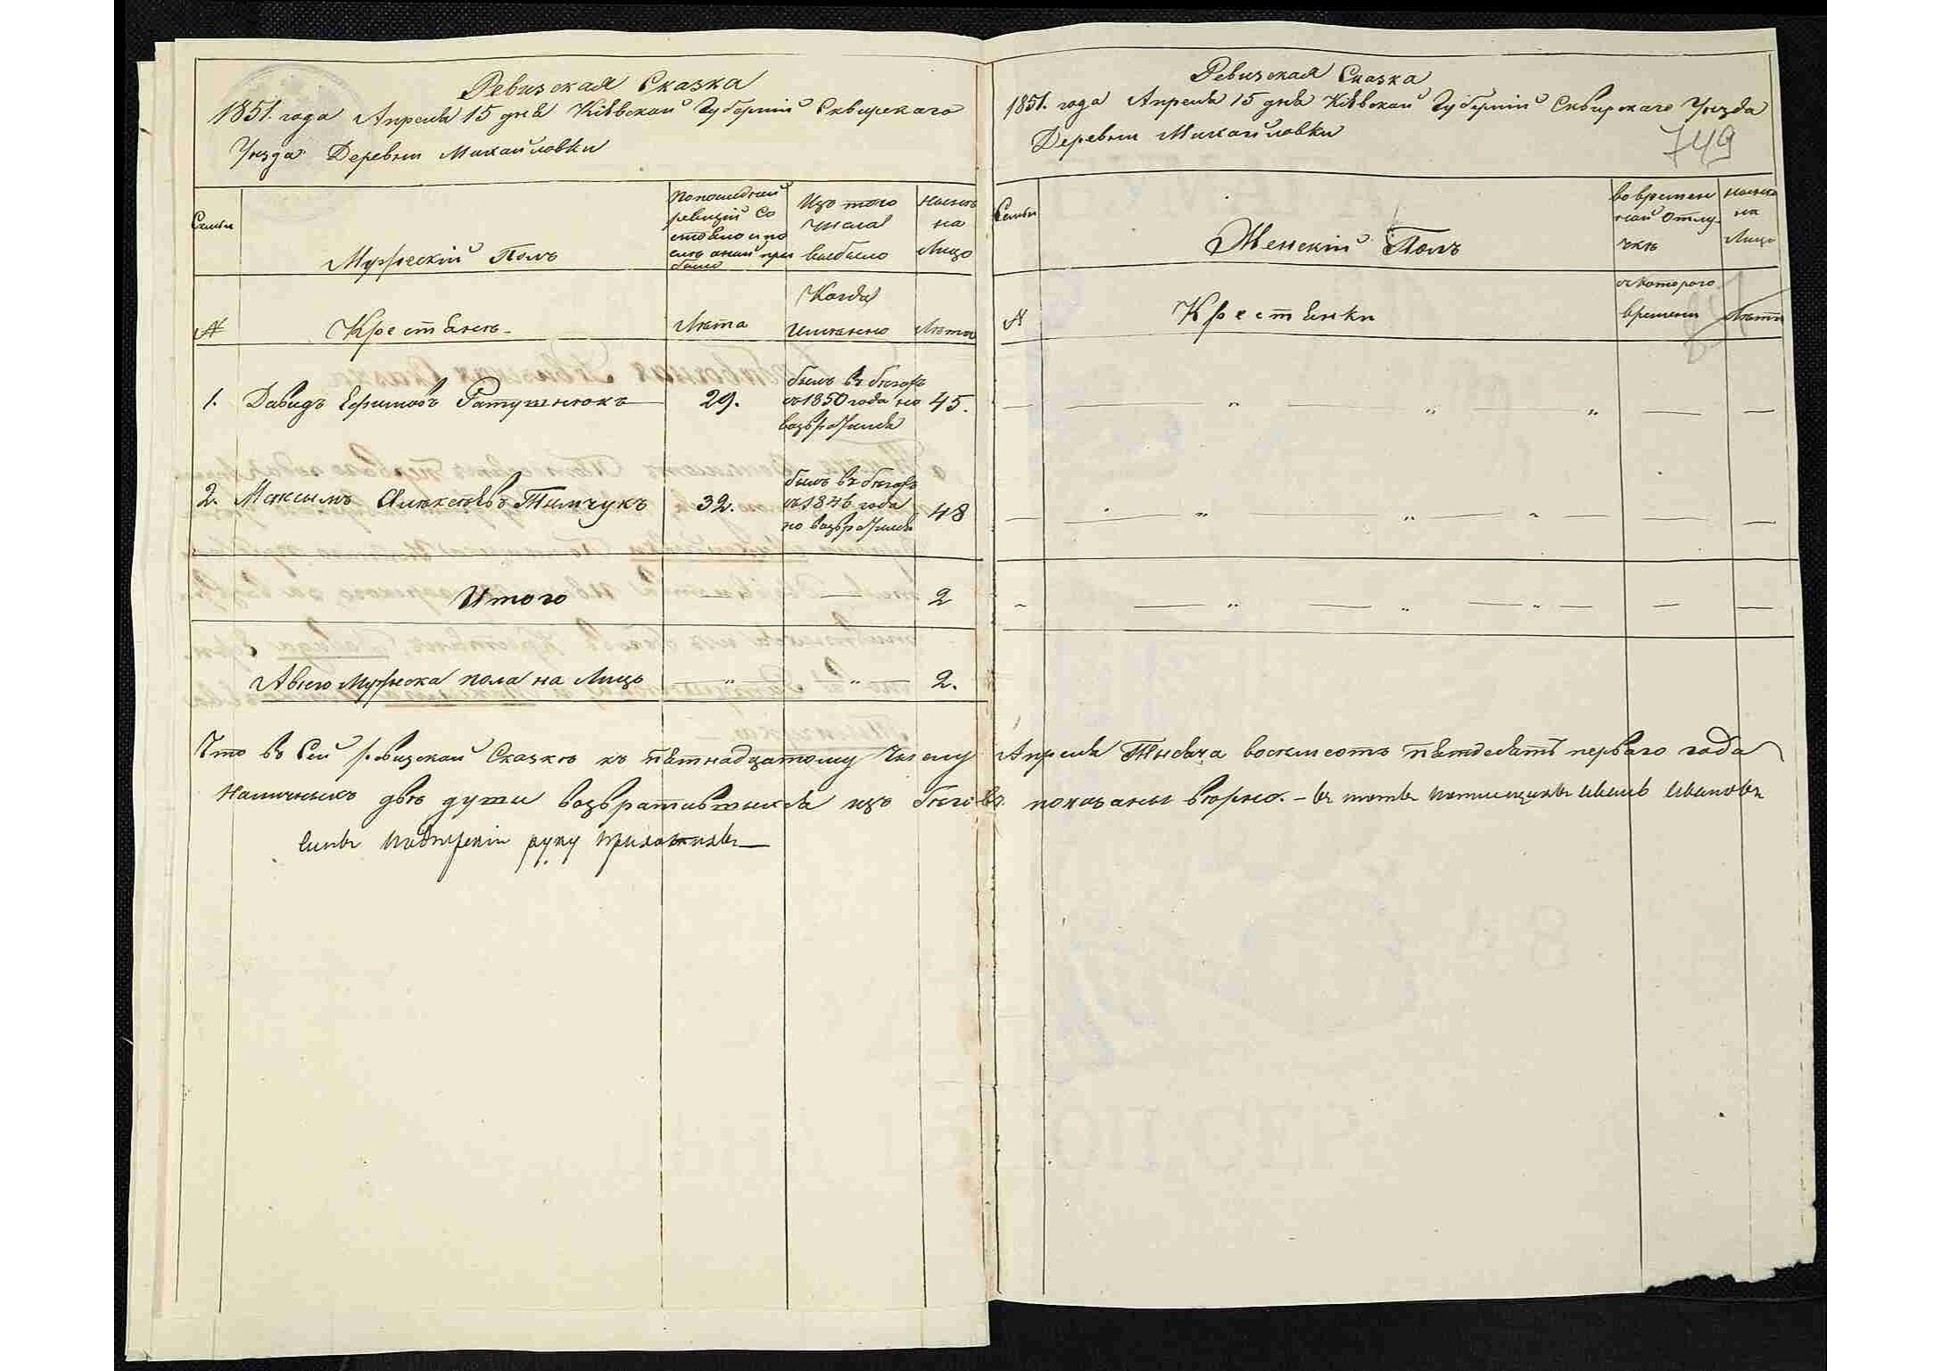 Ревизская Сказка
1851. года Апреля 15 дня Кіевской Губерніи Сквирскаго
Уезда Деревни Михайловки
Семьи
Мужескій Полъ
По последней
ревизіи со
стояло и по
слѣ оной при
было
Изъ того
числа
выбыло
Ныне
на
Лицо
№
Крестьяне
Лѣта
Когда
именно
Лѣта
1. Давидъ Ефимовъ Ратушнюкъ 29. 45.
былъ въ бегахъ
съ 1850 года но
возвратился
2. Максымъ Алексѣевъ Тымчукъ 32. 48
былъ въ бегахъ
съ 1846 года
но возвратился
Итого — — 2
Всего Мужеска пола на Лицо — „ — „ — 2.
Ревизская Сказка
1851. года Апреля 15 дня Кіевской Губерніи Сквирскаго Уезда
Деревни Михайловки
749
Семьи
Женскій Полъ
во времен
ной отлу
чкѣ
на
Лицо
№
Крестьянки
с котораго
времени
Лѣта
Что въ Сей ревизской Сказкѣ къ пятнадцатому Числу Апреля Тысяча восемсотъ пятдесятъ перваго года
наличныхъ двѣ души возвратившыяся изъ бегов показаны вѣрно. – въ томъ помещикъ
руку приложилъ